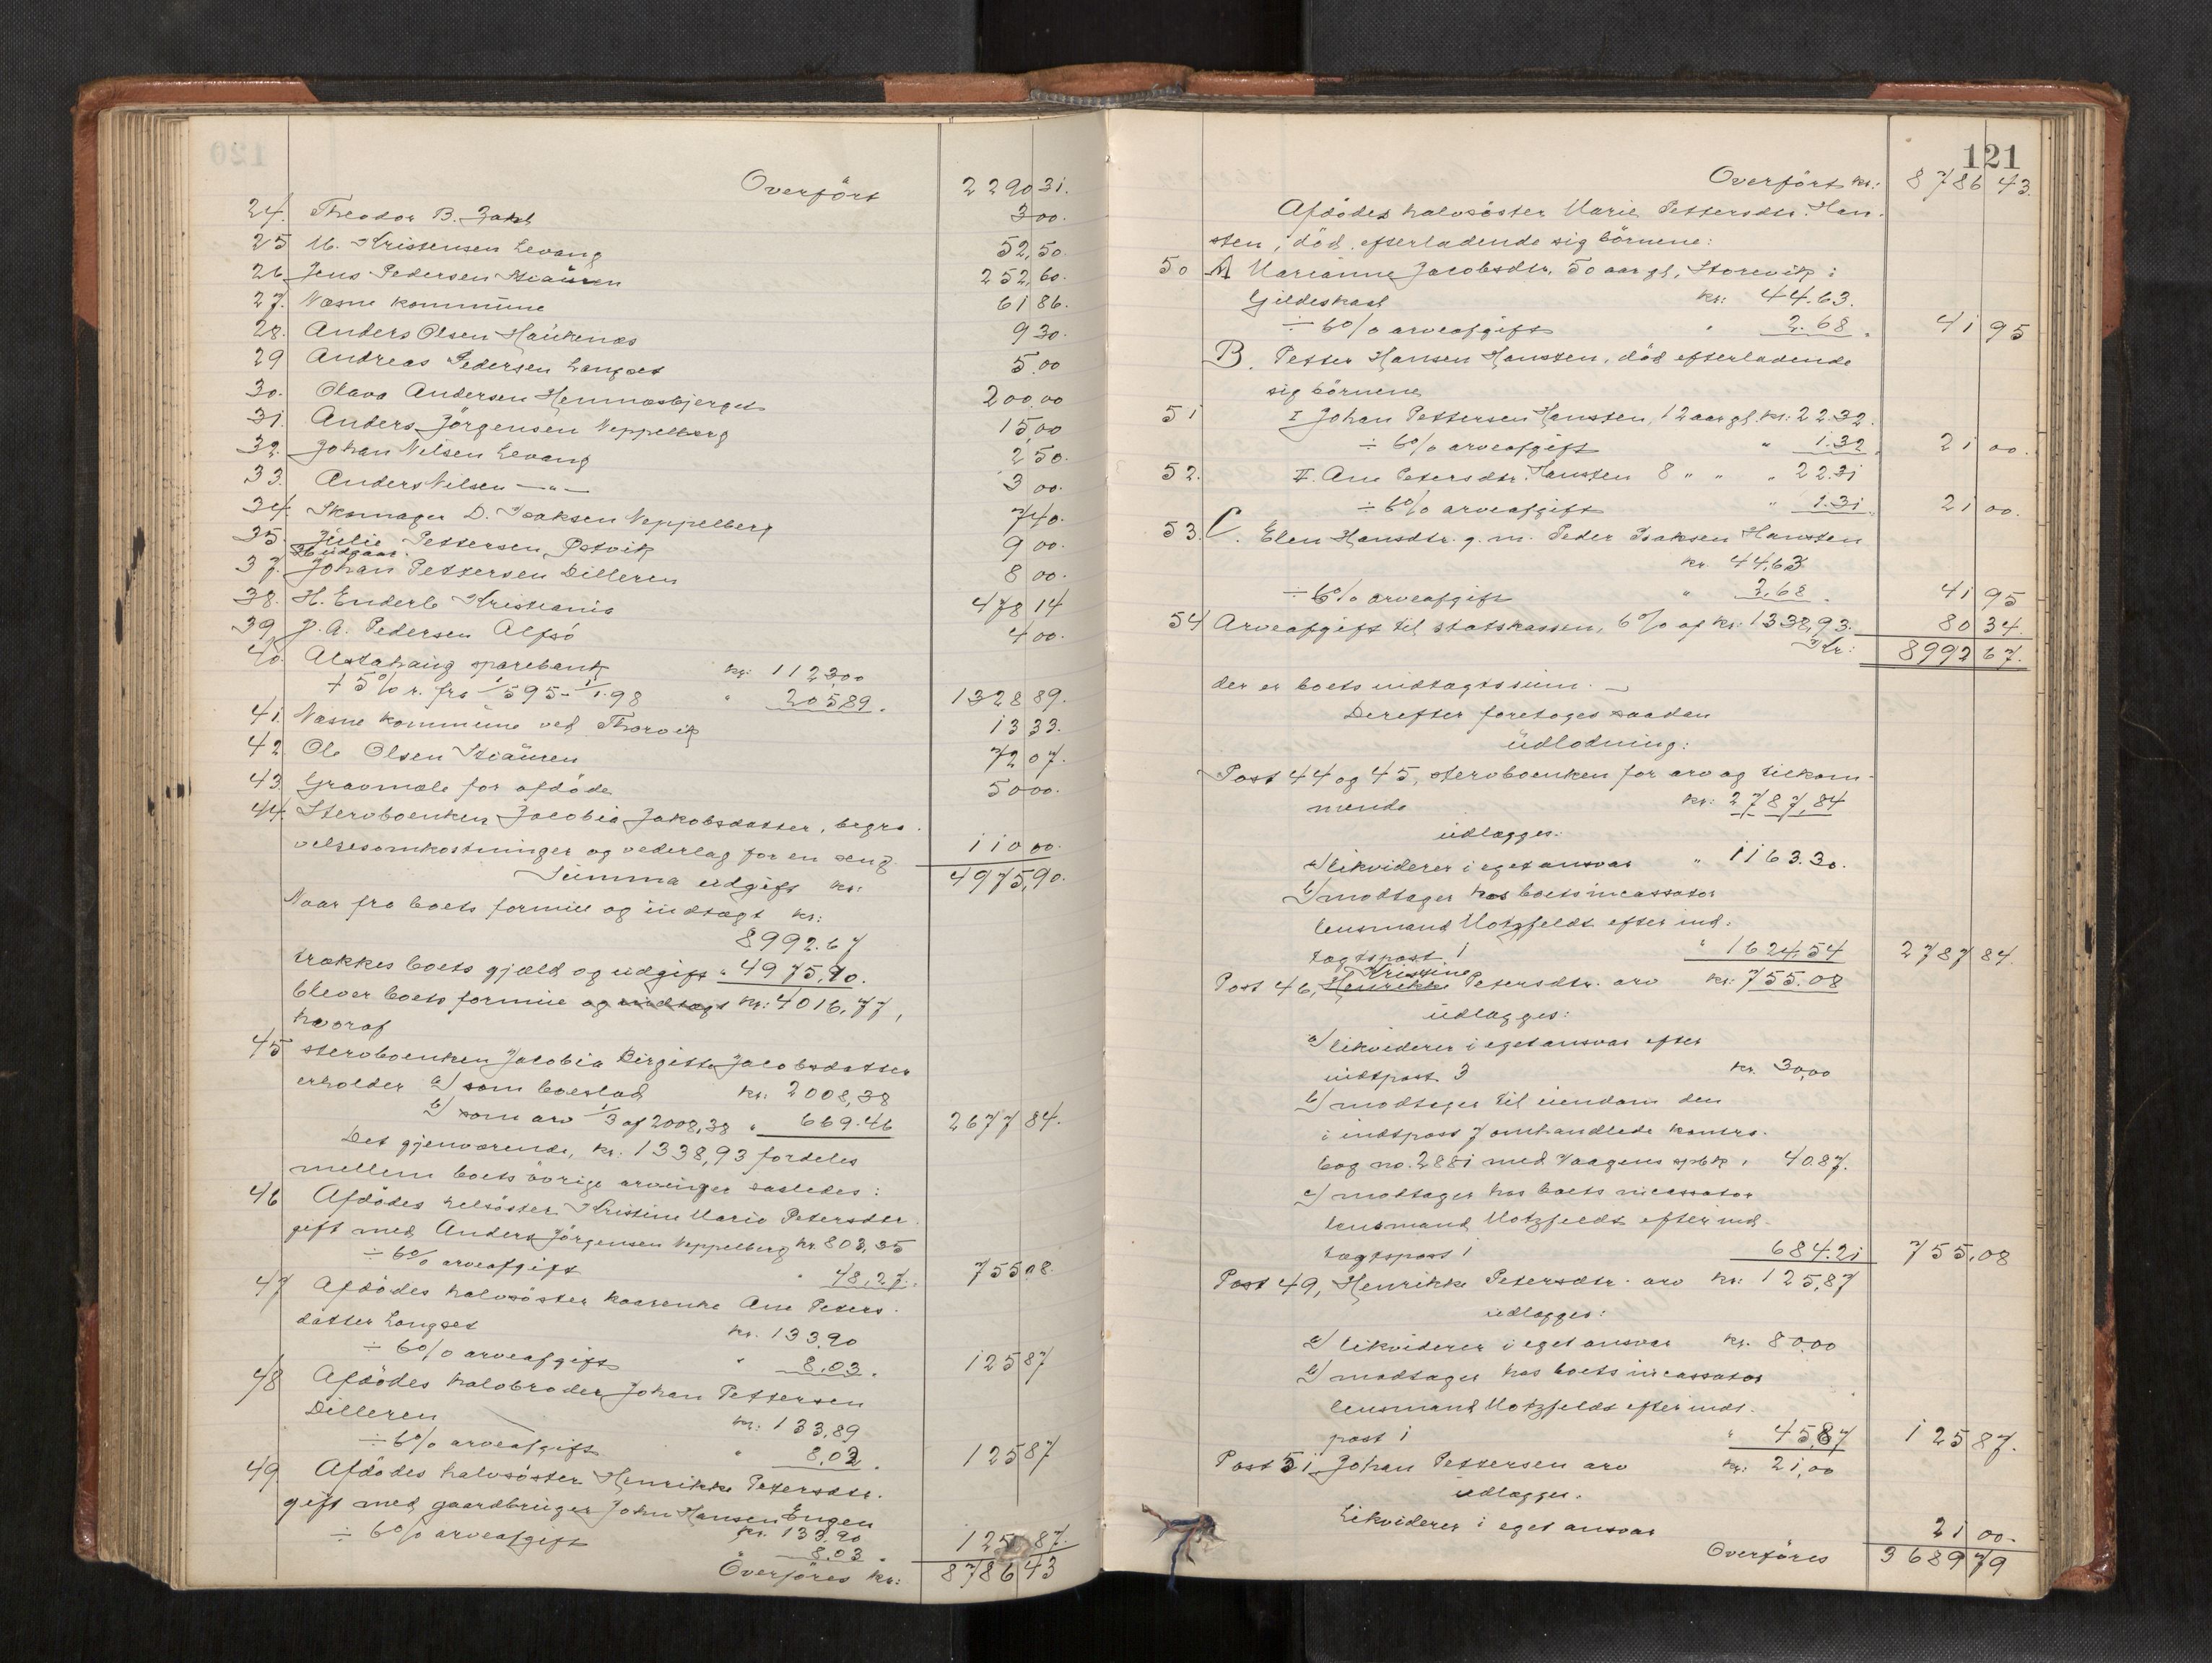 120
Overført 2290 31.
24. Theodor B. Zahl 3 00.
25 M. Kristensen Levang 52,50.
26 Jens Pedersen Stiauren 252,60.
27. Næsne kommune 61 86.
28. Anders Olsen Haukenæs 9 30.
29 Andreas Pedersen Langset 5.00
30. Olava Andersen Hemnæsbjerget 200,00
31. Anders Jörgensen Neppelberg 15,00
32. Johan Nilsen Levang 2 50.
33. Anders Nilsen —„— 3 00.
34. Skomager D. Isaksen Neppelberg 7 40.
35. Julie Pettersen Østvik 9 00.
36 udgaar.
37. Johan Pettersen Dilleren 8 00.
38. H. Enderle Kristiania 478 14
39. J. A. Pedersen Alfsö 4 00.
40. Alstahaug sparebank kr: 1123,00
+ 5% r. fra 1/5 95 - 1/1 98 „ 205,89. 1328 89.
41. Næsne kommune ved Thorvik 13 33.
42. Ole Olsen Stiauren 72 07.
43. Gravmæle for afdøde 50 00.
44. Stervboenken Jacobia Jakobsdatter, begra-
velsesomkostninger og vederlag for en seng 110 00.
Summa udgift kr: 4975,90.
Naar fra boets formue og indtægt kr:
8992.67
trækkes boets gjæld og udgift „ 4975,90.
blever boets formue og indtægt kr: 4016,77,
hvoraf
45 stervboenken Jacobia Birgitte Jacobsdatter
erholder a) som boeslod kr: 2008,38
b) som arv 1/3 af 2008,38 „ 669.46 2677 84.
Det gjenværende, kr: 1338,93 fordeles
mellem boets övrige arvinger saaledes:
46 Afdödes helsöster Kristine Marie Petersdtr.
gift med Anders Jörgensen Neppelberg kr. 803,35
÷ 6% arveafgift „ 48,27. 755 08.
47 Afdödes halvsöster kaarenke Ane Peters-
datter Langset kr. 133.90
÷ 6% arveafgift „ 8.03. 125 87
48 Afdödes halvbroder Johan Pettersen
Dilleren kr: 133,89
÷ 6% arveafgift „ 8.02. 125 87
49 Afdödes halvsöster Henrikke Petersdtr.
gift med gaardbruger John Hansen Engen
kr. 133.90
÷ 6% arveafgift 8.03. 125 87.
Överföres kr: 8786 43
121
Overfört kr.: 8786 43.
Afdödes halvsöster Marie Pettersdtr. Han-
sten, död, efterladende sig börnene:
50 A Marianne Jacobsdtr. 50 aar gl, Storevik i
Gildeskaal kr: 44.63.
÷ 6% arveafgift „ 2.68. 41 95
B. Petter Hansen Hansten, död efterladende
sig börnene
51 I Johan Pettersen Hansten, 12 aar gl. kr: 22.32.
÷ 6% arveafgift „ 1.32. 21 00.
52. II. Ane Petersdtr. Hansten 8 „ „ „ 22.31
÷ 6% arveafgift „ 1.31. 21 00.
53. C. Elen Hansdtr. g. m. Peder Isaksen Hansten
kr. 44,63
÷ 6% arveafgift „ 2,68. 41 95
54 Arveafgift til statskassen, 6% af kr: 1338,93. 80 34.
Kr: 8992 67.
der er boets indtægtssum. —
Derefter foretoges saadan
udlodning:
Post 44 og 45, stervboenken for arv og tilkom-
mende kr: 2787,84
udlægges:
a) likviderer i eget ansvar „ 1163.30.
b) modtager hos boets incassator
lensmand Motzfeldt efter ind-
tægtspost 1 „ 1624,54 2787 84.
Kristine
Post 46, Henrikke Petersdtr. arv kr: 755.08
udlægges:
a) likviderer i eget ansvar efter
indtpost 3 kr. 30,00
b) modtager til eiendom den
i indtpost 7 omhandlede kontra-
bog no. 2881 med Vaagens spbk „ 40.87.
c) modtager hos boets incassator
lensmand Motzfeldt efter ind-
tægtspost 1 684.21 755,08
Post 49, Henrikke Petersdtr. arv kr: 125,87
udlægges:
a) likviderer i eget ansvar kr. 80,00
b) modtager hos boets incassator
lensmand Motzfeldt efter indt.
post 1 „ 45,87 125 87.
Post 51 Johan Pettersen arv kr: 21,00
udlægges.
Likviderer i eget ansvar 21 00.
Overföres 3689 79